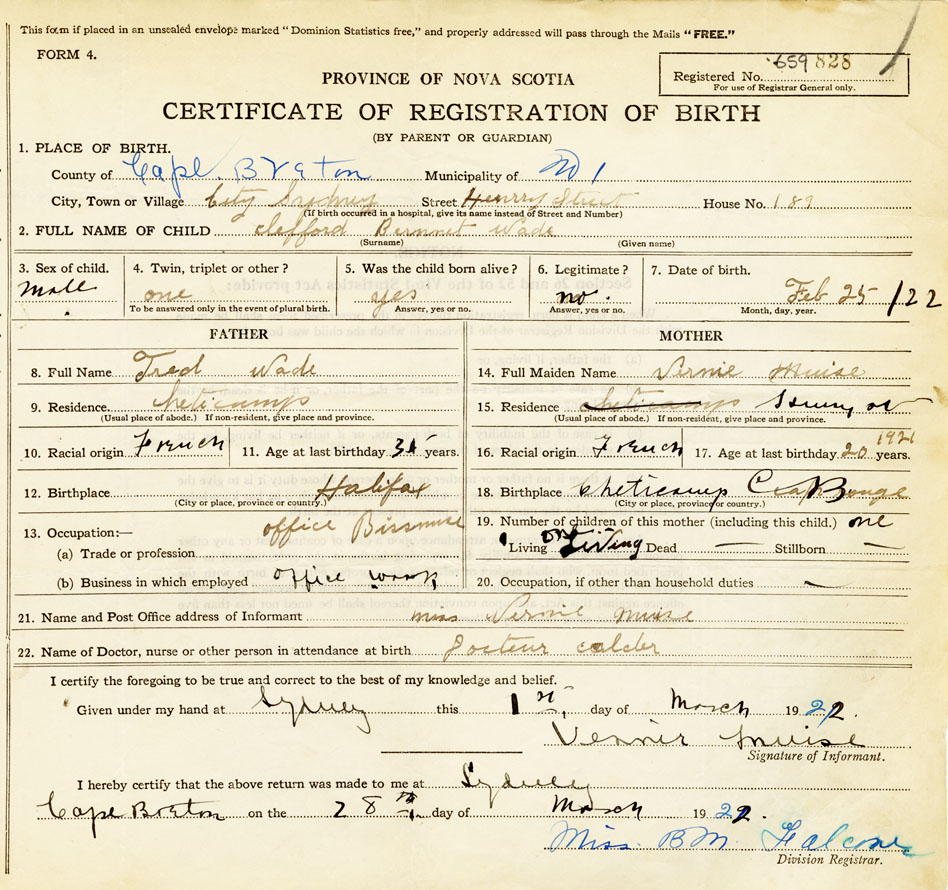 This form if placed in an unsealed envelope marked "Dominion Statistics free," and properly addressed will pass through the Mails "FREE."
FORM 4.
659 828
Registered No.
For use of Registrar General only.
PROVINCE OF NOVA SCOTIA
CERTIFICATE OF REGISTRATION OF BIRTH
(BY PARENT OR GUARDIAN)
1. PLACE OF BIRTH.
County of Cape Breton Municipality of No 1
City, Town or Village City Sydney Street Henrry Street House No. 189
(If birth occurred in a hospital, give its name instead of Street and Number)
2. FULL NAME OF CHILD Clefford Bernnet Wade
(Surname) (Given name)
3. Sex of child. 4. Twin, triplet or other? 5. Was the child born alive? 6. Legitimate? 7. Date of birth.
Male one yes no. Feb 25 /22
To be answered only in the event of plural birth. Answer, yes or no. Answer, yes or no. Month, day, year.
FATHER MOTHER
8. Full Name Fred Wade 14. Full Maiden Name Vernie Muise
9. Residence. Cheticamp 15. Residence Cheticamp Henry st
(Usual place of abode.) If non-resident, give place and province. (Usual place of abode.) If non-resident, give place and province.
1921
10. Racial origin French 11. Age at last birthday 35 years. 16. Racial origin French 17. Age at last birthday 20 years.
12. Birthplace Halifax 18. Birthplace Cheticamp
(City or place, province or country.) (City or place, province or country.)
13. Occupation:— office 19. Number of children of this mother (including this child.) one
(a) Trade or profession Living one Living Dead — Stillborn —
(b) Business in which employed office work 20. Occupation, if other than household duties —
21. Name and Post Office address of Informant miss Vernie Muise
22. Name of Doctor, nurse or other person in attendance at birth Docteur calder
I certify the foregoing to be true and correct to the best of my knowledge and belief.
Given under my hand at Sydney this 1st, day of March 1922.
Vernie Muise
Signature of Informant.
I hereby certify that the above return was made to me at Sydney
Cape Breton on the 28th day of March 1922.
Miss. B M. Falconer
Division Registrar.